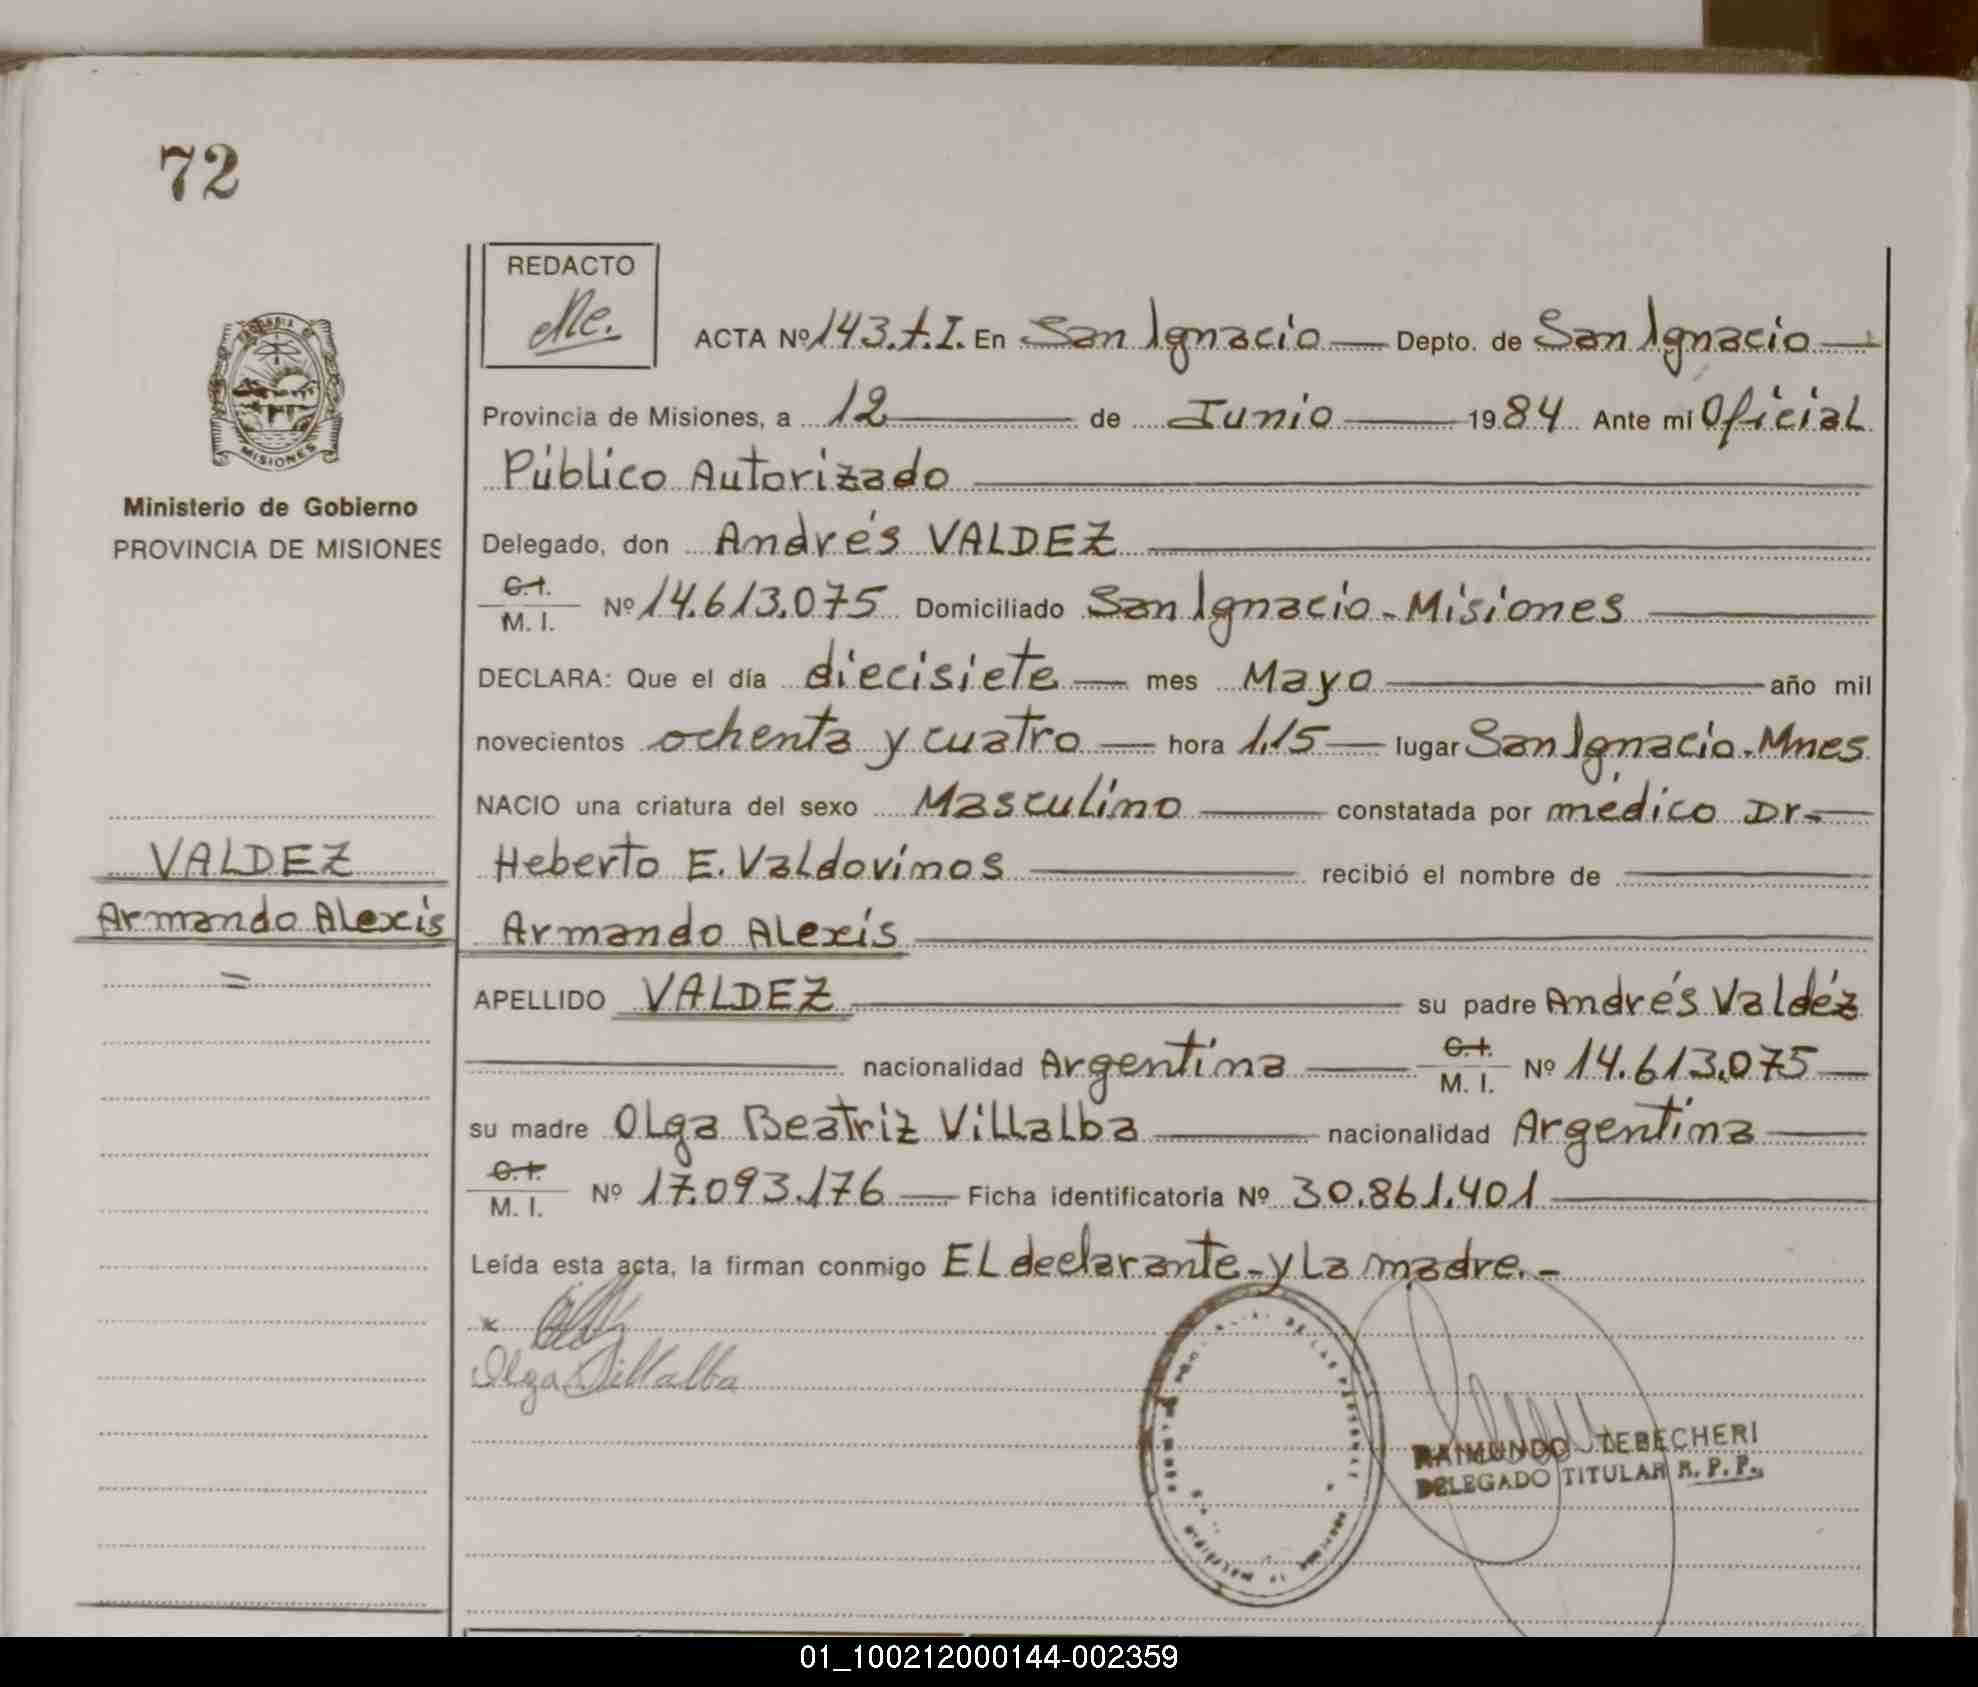 72
REDACTO
ACTA Nº 143.t.I. En San Ignacio Depto. de San Ignacio
Provincia de Misiones, a 12 de Junio 1984 Ante mi Oficial
Público Autorizado
MISIONES
Ministerio de Gobierno
PROVINCIA DE MISIONES
Delegado, don Andrés VALDEZ
C.I. M. I. Nº 14.613.075 Domiciliado San Ignacio - Misiones
DECLARA: Que el día diecisiete mes Mayo año mil
novecientos ochenta y cuatro hora 1.15 lugar San Ignacio. Mnes
NACIO una criatura del sexo Masculino constatada por médico Dr.
Heberto E. Valdovinos recibió el nombre de
VALDEZ
Armando Alexis
Armando Alexis
APELLIDO VALDEZ su padre Andrés Valdéz
nacionalidad Argentina C.I. M. I. Nº 14.613.075
su madre Olga Beatriz Villalba nacionalidad Argentina
C.I. M. I. Nº 17.093.176 Ficha identificatoria Nº 30.861.401
Leída esta acta, la firman conmigo El declarante - y la madre. -
Olga Villalba
DE LAS PERSONAS
RAIMUNDO TEBECHERI
DELEGADO TITULAR R. P. P.
01_100212000144-002359